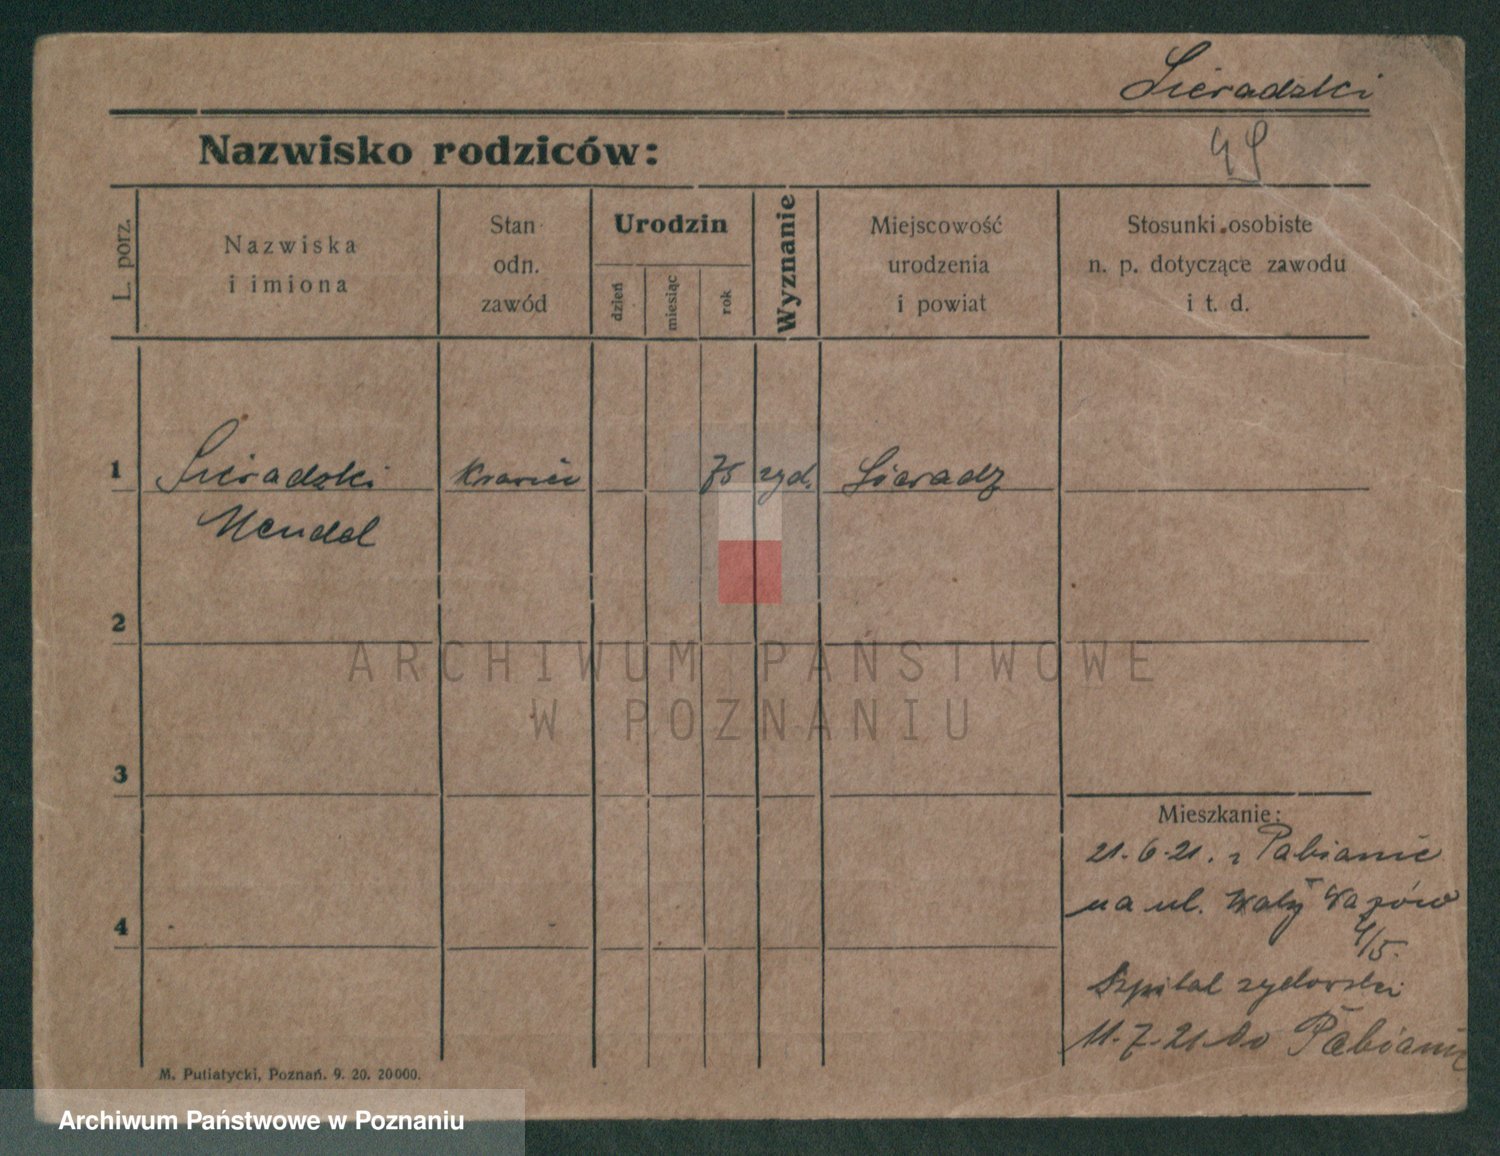 Sieradzki
Nazwisko rodziców:
49
L. porz.
Nazwiska
i imiona
Stan
odn.
zawód
Urodzin
dzień
miesiąc
rok
Wyznanie
Miejscowość
urodzenia
i powiat
Stosunki osobiste
n. p. dotyczące zawodu
i t. d.
1 Sieradzki krawiec 75 żyd. Sieradz
Mendel
2
3
4
Mieszkanie:
21.6.21. z Pabianic
na ul. Wały Wazów
4/5.
Szpital zydowski
11.7.21 do Pabianic
M. Putiatycki, Poznań. 9. 20. 20000.
ARCHIWUM PAŃSTWOWE
W POZNANIU
Archiwum Państwowe w Poznaniu